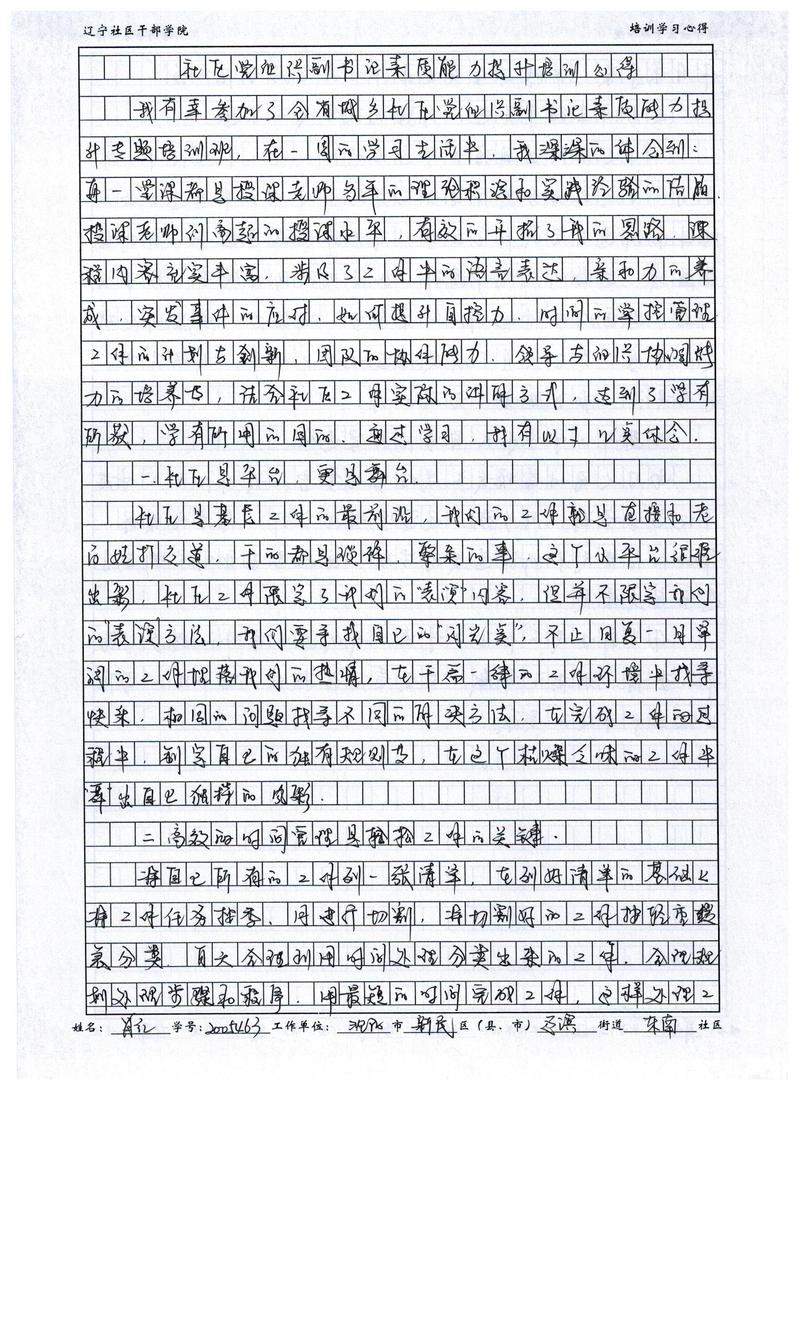 辽宁社区干部学院 培训学习心得
社区党组织副书记素质能力提升培训心得
我有幸参加了全省城乡社区党组织副书记素质能力提
升专题培训班,在一周的学习生活中,我深深的体会到:
每一堂课都是授课老师多年的理论积淀和实践经验的结晶,
授课老师们高超的授课水平,有效的开拓了我的思路,课
程内容充实丰富,涉及了工作中的语言表达,亲和力的养
成,突发事件的应对,如何提升自控力,时间的掌控管理
工作的计划与创新,团队的协作能力,领导与组织协调能
力的培养等,结合社区工作实际的讲解方式,达到了学有
所教,学有所用的目的。通过学习,我有以下几点体会。
一、社区是平台,更是舞台。
社区是基层工作的最前沿,我们的工作就是直接和老
百姓打交道,干的都是琐碎,繁杂的事,这个小平台很难
出彩,社区工作限定了计划的“表演”内容,但并不限定我们
的“表演”方法,我们要寻找自己的“闪光点”,不止日复一日单
调的工作埋葬我们的热情,在千篇一律的工作环境中找寻
快乐,相同的问题找寻不同的解决方法,在完成工作的过
程中,制定自己的独有规则等,在这个枯燥乏味的工作中
“舞”出自己独特的风彩。
二、高效的时间管理是轻松工作的关键。
将自己所有的工作列一张清单,在列好清单的基础上
将工作任务排序,再进行切割,将切割好的工作按轻重缓
急分类,每天合理利用时间处理分类出来的工作,合理规
划处理步骤和程序,用最短的时间完成工作,这样处理工
姓名: 肖红 学号:2005463 工作单位: 沈阳 市 新民 区(县、市) 辽滨 街道 东南 社区